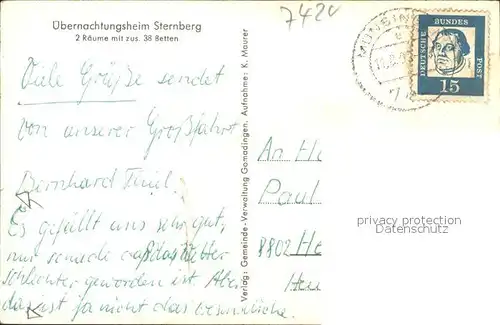 Übernachtungsheim Sternberg
2 Räume mit zus. 38 Betten
7420
MÜNSING
DEUTSCHE
BUNDES
POST
15
Viele Grüße sendet
von unserer Großfahrt
Bernhard
Es gefällt uns sehr gut,
nur das Wetter
schlechter geworden ist. Aber
das ist ja nicht das
Verlag: Gemeinde-Verwaltung Gomadingen. Aufnahme: K. Maurer
An
Paul
8802 He
privacy protection
Datenschutz